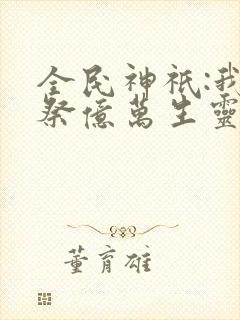 全民神祇:我
祭億萬生靈
董育雄